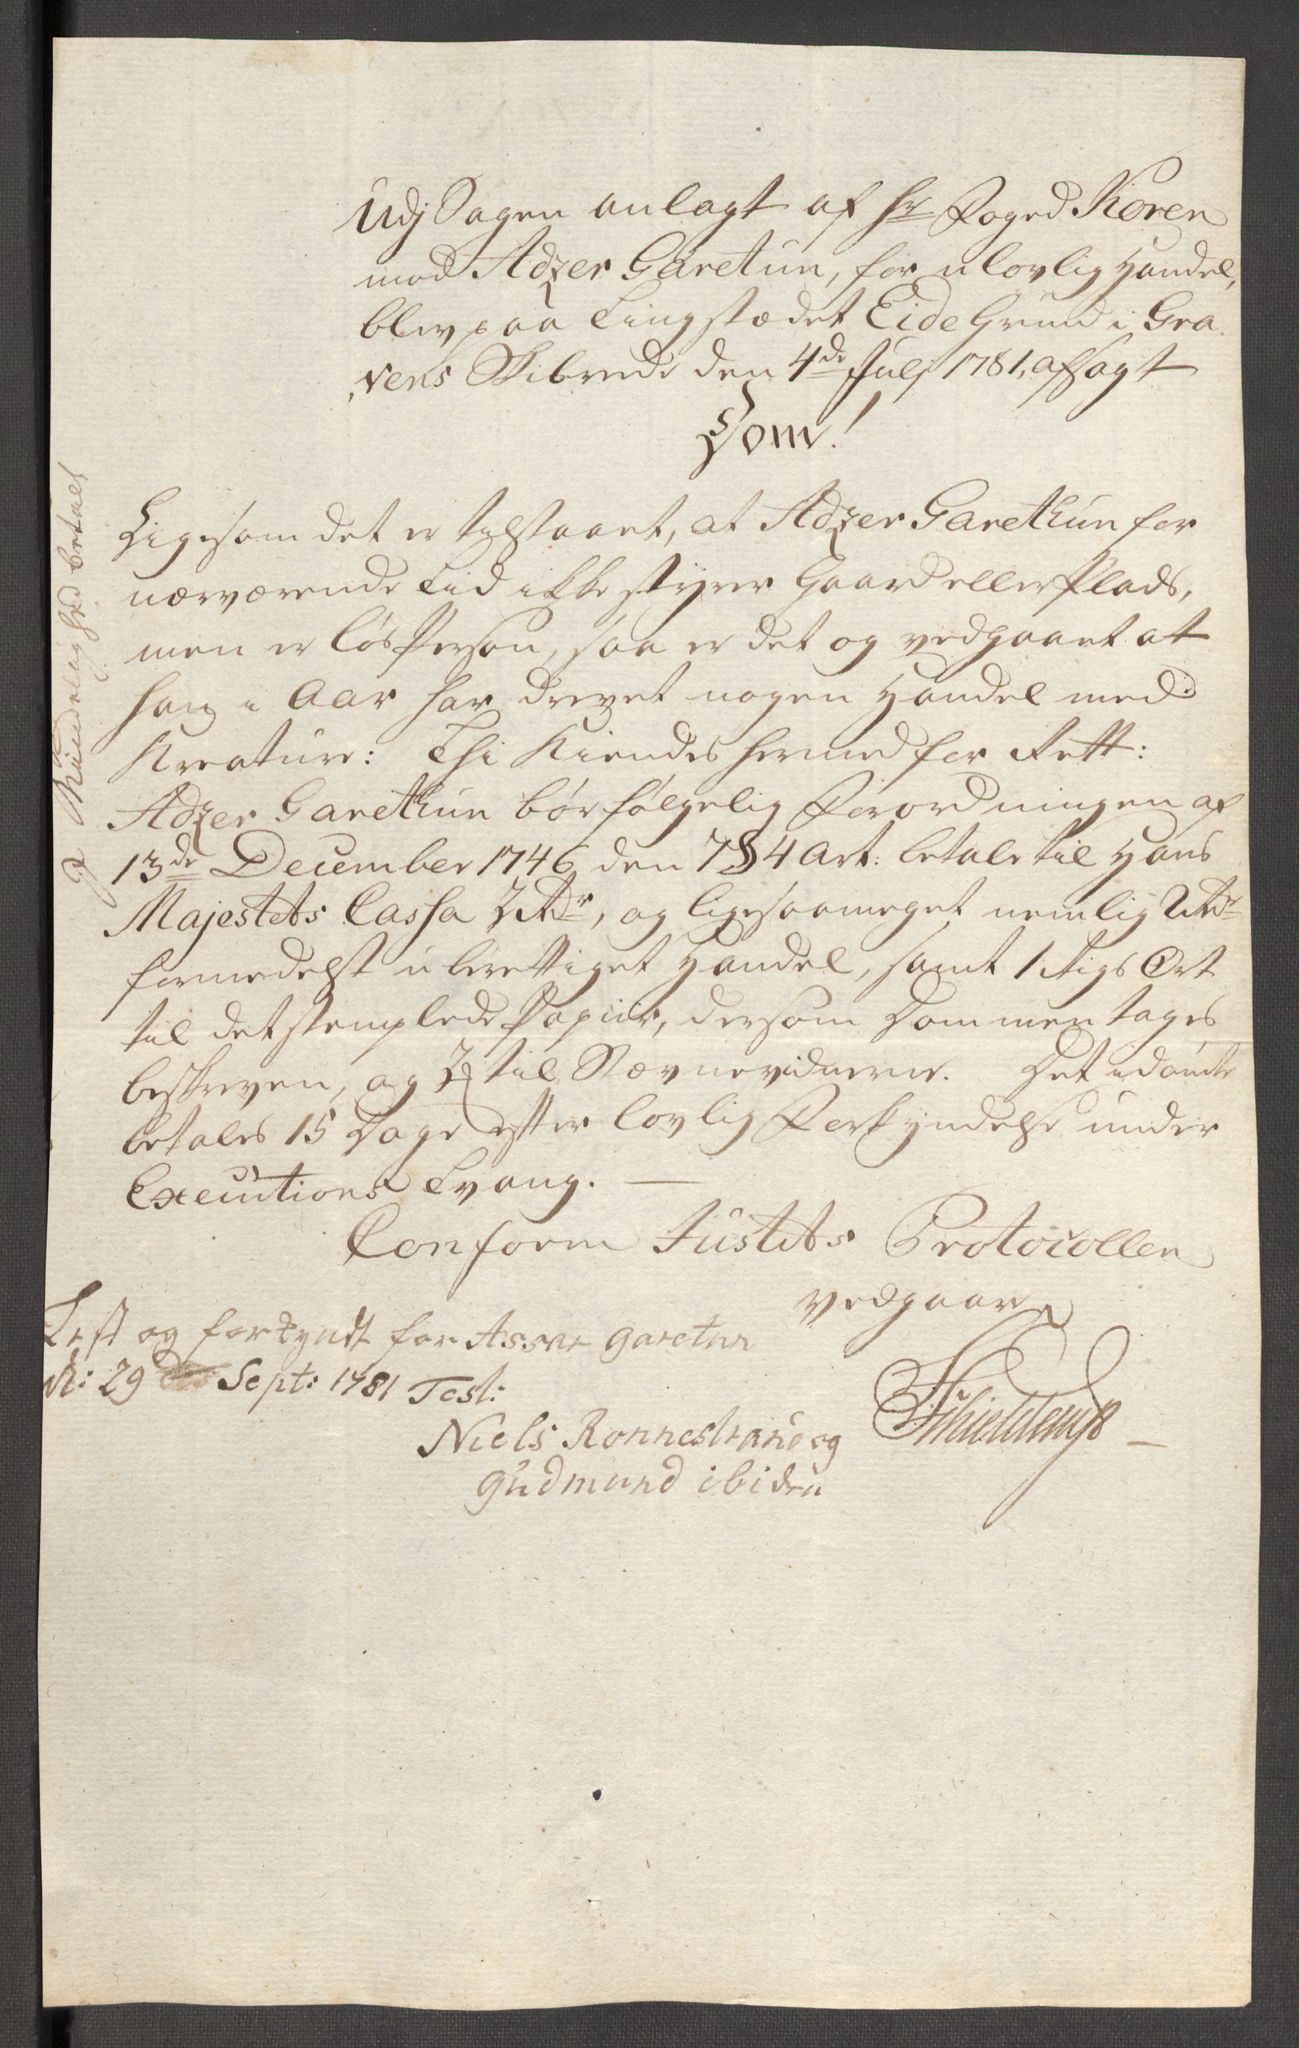 Udj Sagen anlagt af Hr Foged Koren
mod Adzer Garetun, for ulovlig Handel,
blev paa Tingstædet Eide Grund i Gra
vens Skibrede den 4de Julj 1781, afsagt
Dom!
Ligesom det er tilstaaet, at Adzer Garethun for
nærværende Tid ikke styrer Gaard eller Plads,
men er løs Person, saa er det og vedgaaet at
han i Aar har drevet nogen Handel med
Kreature: Thi Kiendes hermed for Rett:
Adzer Garethun bør følgelig Forordningen af
13de December 1746 den 7 § 4 Art: betale til Hans
Majestets Cassa 2 Rdr, og ligesaameget nemlig 2 Rdr
formedelst uberettiget Handel, samt 1 Rigs Ort
til det stemplede Papiir, dersom Dommen tages
beskreven, og til Stævnevidnerne. Det idømte
betales 15 Dage efter lovlig Forkyndelse under
Executions Tvang.
Conform Justits Protocollen
vedgaar
Schieldrup
Lest og forkyndt for Asser Garetun
d: 29 Sept: 1781 Test:
Niels Ronnestrand og
Gudmund ibidm
betalt